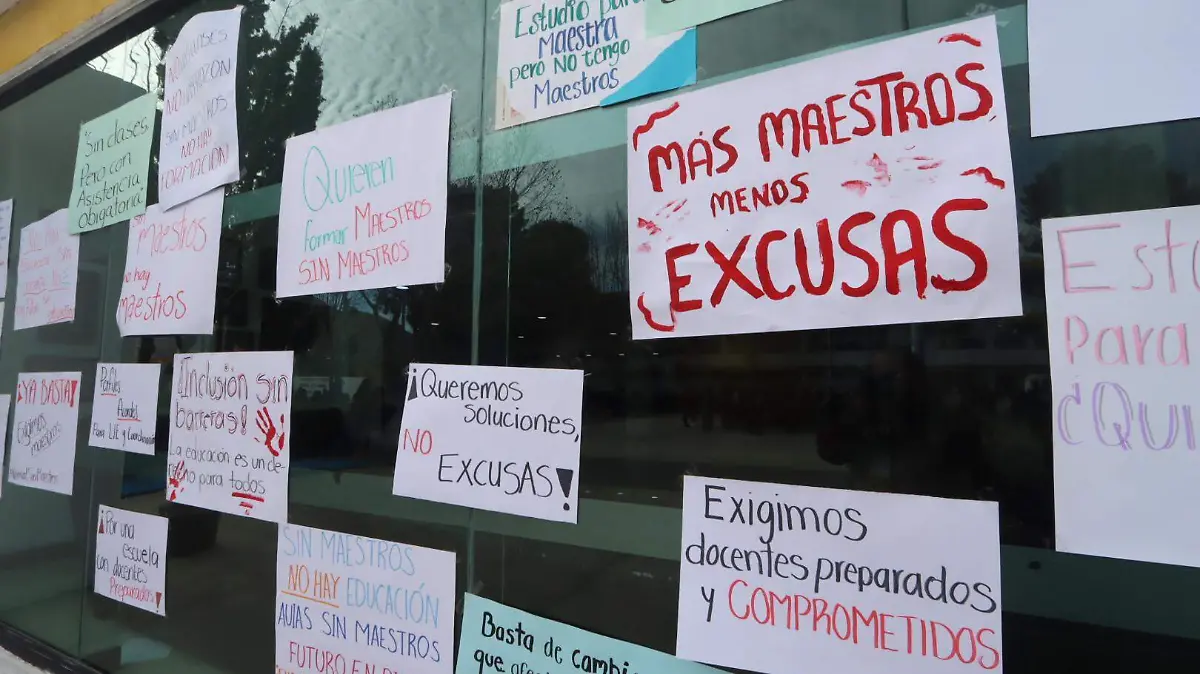 Estudio para
Maestra
pero No tengo
Maestros
MÁS MAESTROS,
MENOS
EXCUSAS
Sin clases
Pero con
Asistencia
Obligatoria
SIN
NO HAY
FORMACIÓN
Quieren
formar MAESTROS
SIN MAESTROS
Maestros
no hay
maestros
¡YA BASTA!
Exigimos
maestros
Perfiles
Acordes
Para LIE y Coordinación
¡Inclusión sin
barreras!
La educación es un de-
recho para todos
¡Queremos
soluciones,
NO
EXCUSAS!
Exigimos
docentes preparados
y COMPROMETIDOS
¡Por una
escuela
con docentes
Preparados!
SIN MAESTROS
NO HAY EDUCACIÓN
AULAS SIN MAESTROS
FUTURO EN
Basta de cambi
que
Est
Para
¿Qui